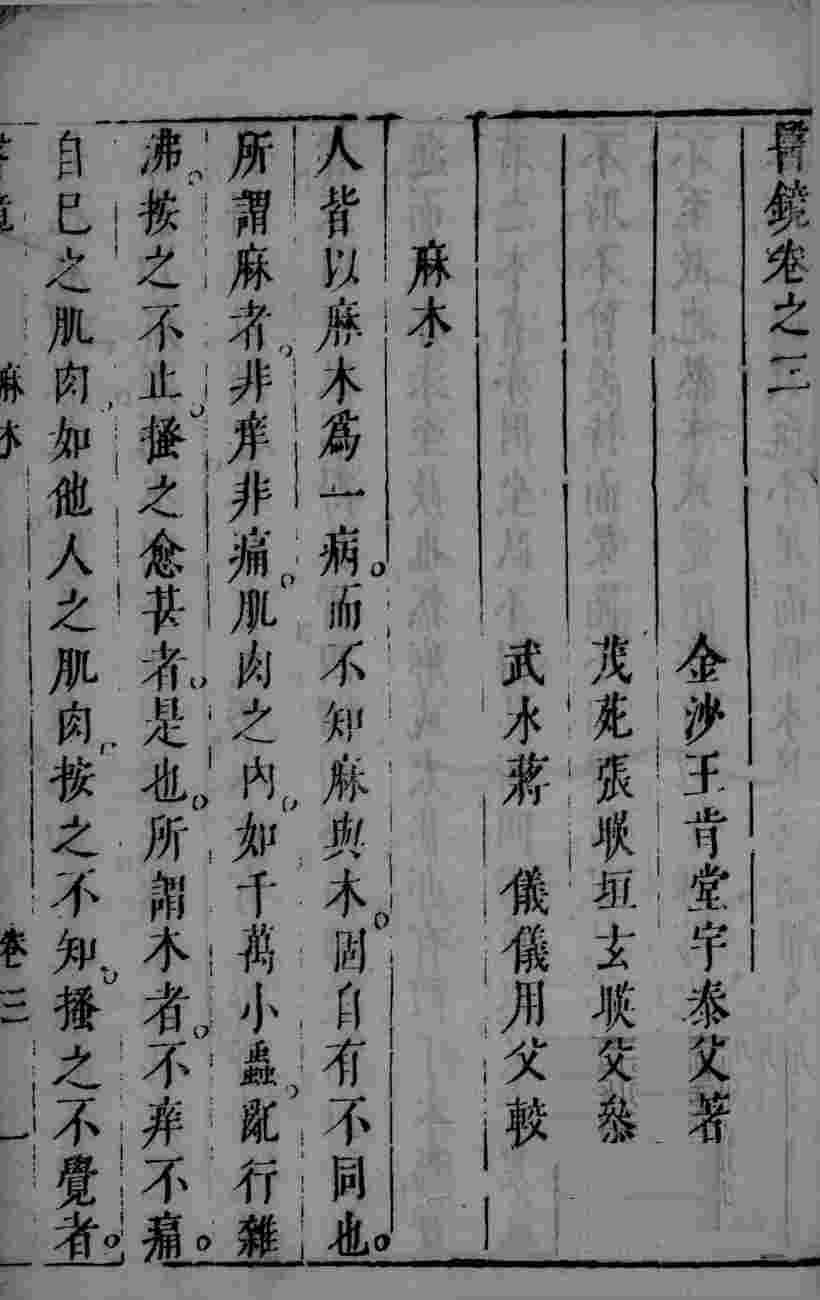 醫鏡卷之三
金沙王肯堂宇泰父著
茂苑張㬋垣玄㬋父叅
武水蔣 儀儀用父較
麻木
人皆以麻木爲一病。而不知麻與木。固自有不同也。
所謂麻者。非痒非痛。肌肉之內。如千萬小蟲。亂行雜
沸。按之不止。搔之愈甚者。是也。所謂木者。不痒不痛。
自己之肌肉。如他人之肌肉。按之不知。搔之不覺者。
醫鏡 麻木 卷三 一